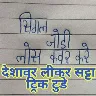 सिंगल
जोड़ी
जोस कवर करे
देशावर लीकर सट्टा
ट्रिक टुडे